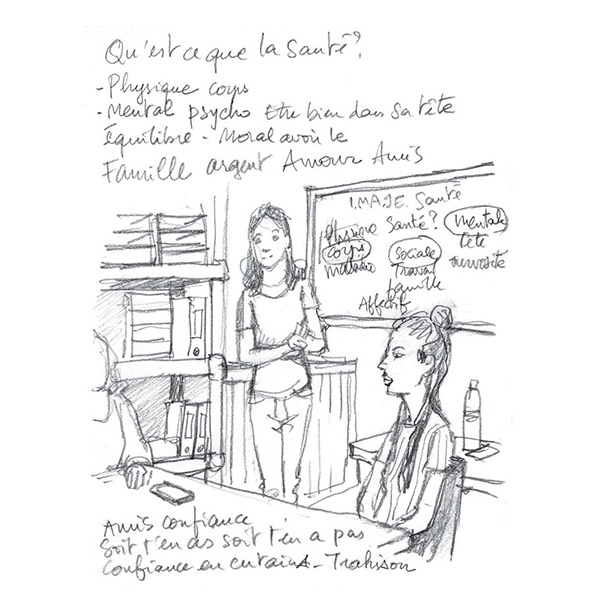 Qu'est ce que la Santé?
- Physique corps
- Mental psycho Etre bien dans sa tête
équilibre - Moral avoir le
Famille argent Amour Amis
I.MA.JE. Santé
Physique Santé? Mentale
corps Sociale Tête
maladie Travail nervosité
famille
Affectif
Amis confiance
Soit t'en as soit t'en a pas
Confiance en certains - Trahison